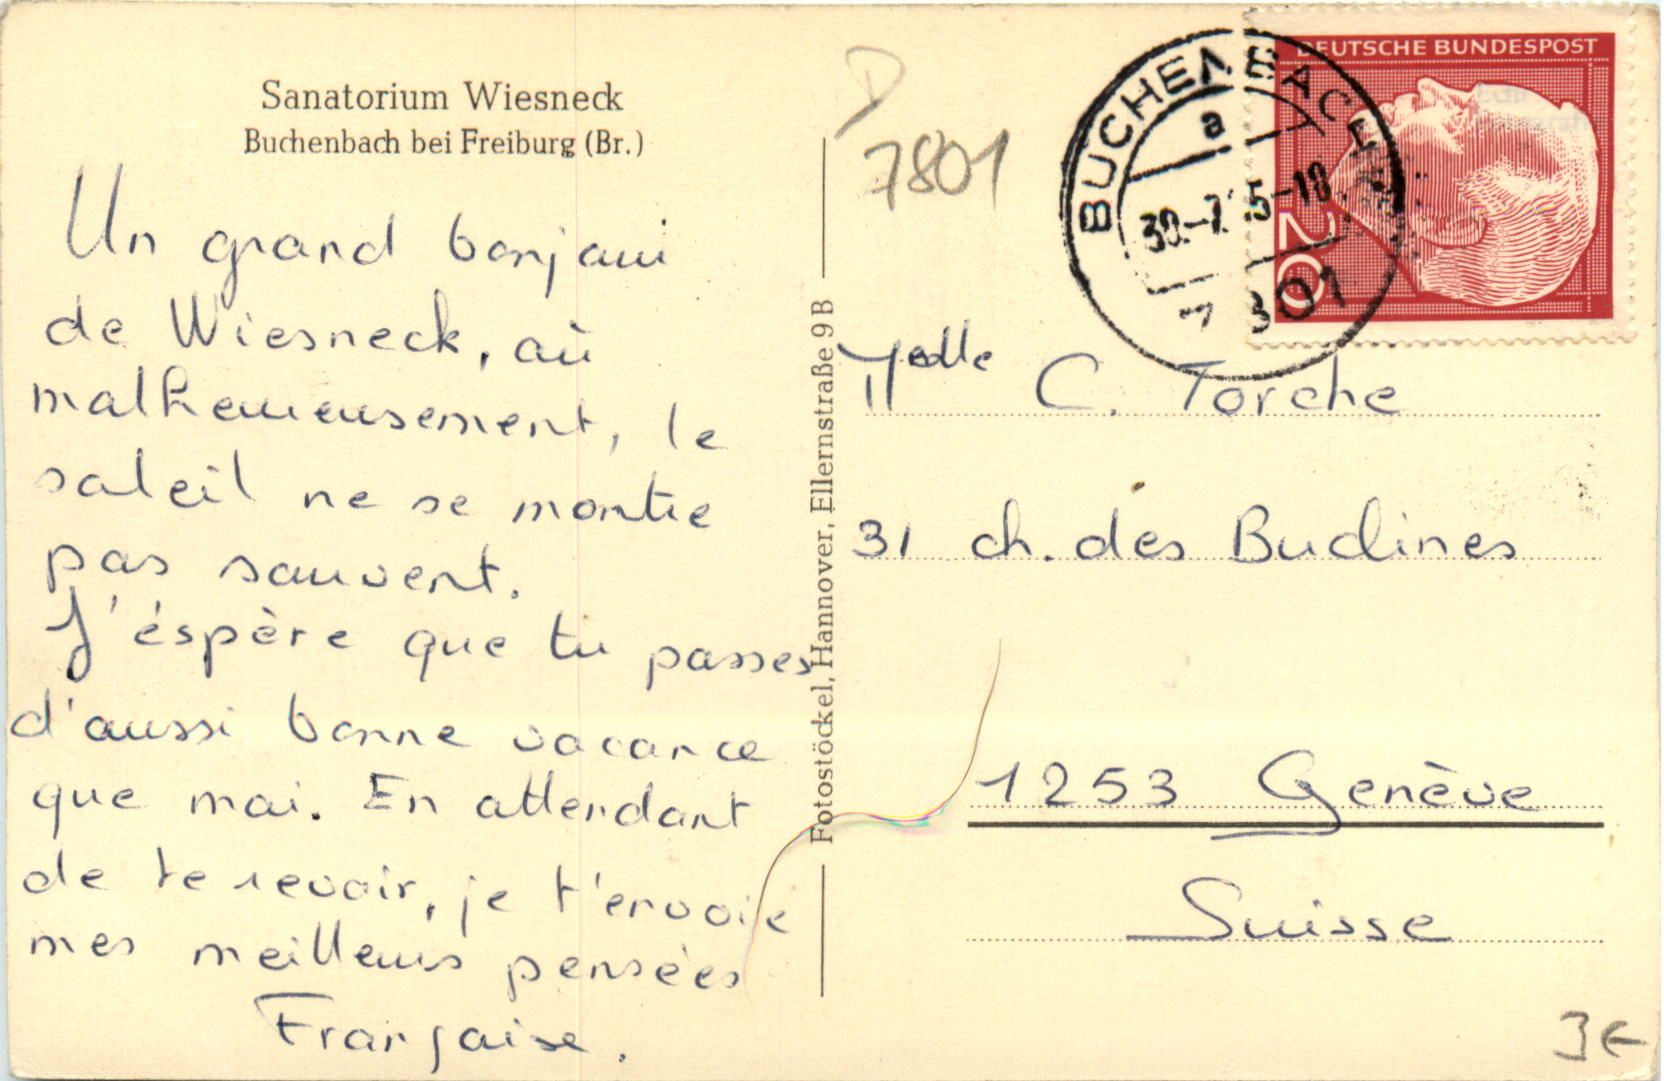 Sanatorium Wiesneck
Buchenbach bei Freiburg (Br.)
Un grand bonjour
de Wiesneck, où
malheureusement, le
soleil ne se montre
pas souvent.
J'éspère que tu passes
d'aussi bonne vacance
que moi. En attendant
de te revoir, je t'envoie
mes meilleurs pensées
Françoise.
Fotostöckel, Hannover, Ellernstraße 9 B
D
7801
BUCHENBACH
a
7801
DEUTSCHE BUNDESPOST
20
Melle C. Torche
31 ch. des Budines
1253 Genève
Suisse
3€